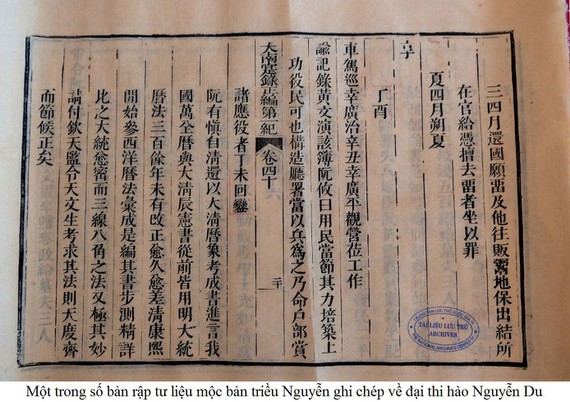 三四月還國願畱及他往販鬻地保出結所
在官給憑擅去畱者坐以罪
夏四月朔夏
享
丁酉
車駕巡幸廣治辛丑幸廣平觀營莅工作
諭記錄黃文演該簿阮攸曰用民當節其力培築上
功役民可也構造廳署當以兵為之乃命戶部賞
大南寔錄正編第一紀 卷四十
二十
諸應役者丁未回鑾
阮有慎自清還以大清曆象考成書進言我
國萬全曆與大清辰憲書從前皆用明大統
曆法三百餘年未有改正愈久愈差清康熙
開始參西洋曆法彙成是編其書步測精詳
比之大統愈密而三線八角之法又極其妙
請付欽天監令天文生考求其法則天度齊
而節候正矣
TÀI LIỆU LƯU TRỮ
ARCHIVES
Một trong số bản rập tư liệu mộc bản triều Nguyễn ghi chép về đại thi hào Nguyễn Du